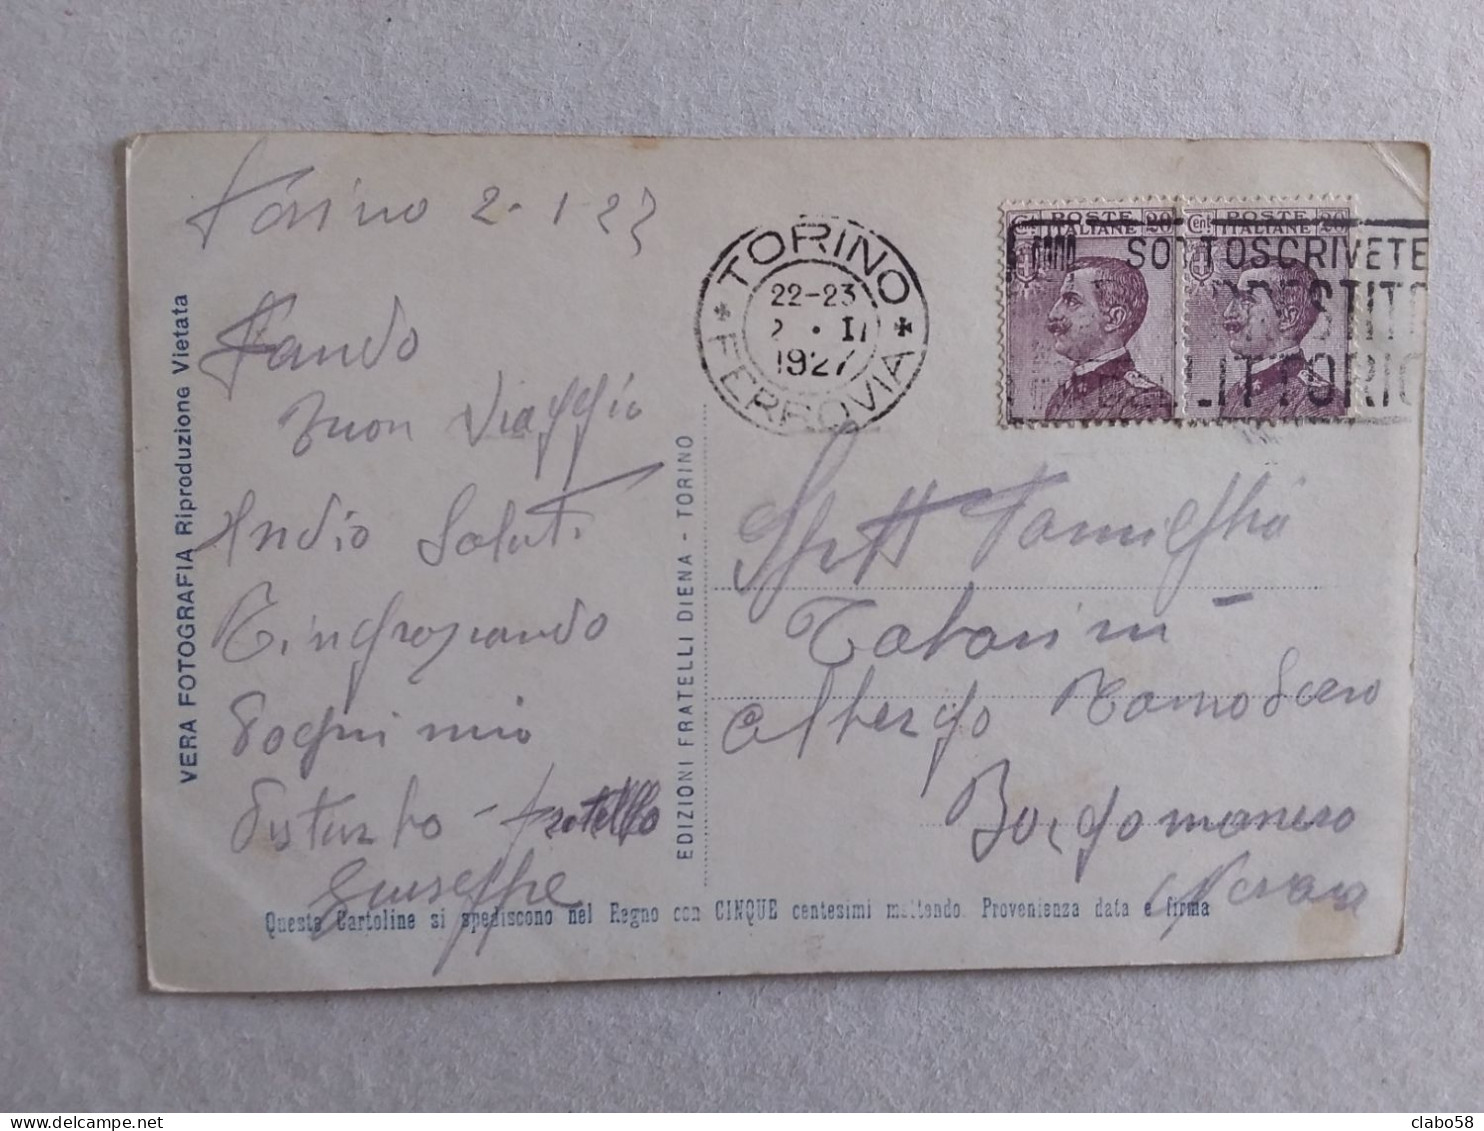 Torino 2-1-27
Fando
buon Viaggio
Andio Saluti
Ringraziando
Dogni mio
disturbo - fratello
Giuseppe
VERA FOTOGRAFIA Riproduzione Vietata
EDIZIONI FRATELLI DIENA - TORINO
TORINO
22-23
2 • I
1927
FERROVIA
Cent POSTE ITALIANE 20
Cent POSTE ITALIANE 20
SOTTOSCRIVETE
PRESTITO
DEL LITTORIO
Spett Famiglia
Albergo
Borgomanero
Novara
Queste Cartoline si spediscono nel Regno con CINQUE centesimi mettendo. Provenienza data e firma
clabo58